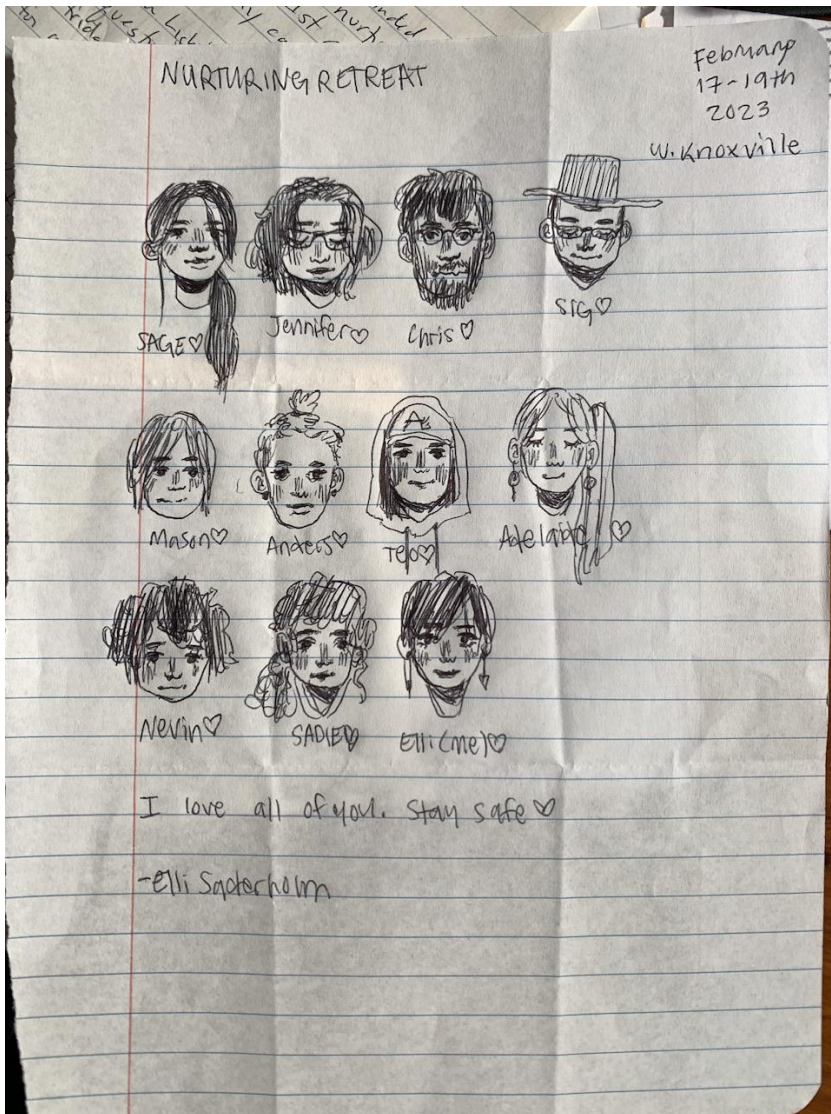 NURTURING RETREAT
February
17-19th
2023
W. Knoxville
SAGE♡
Jennifer♡
Chris♡
SIG♡
A
Mason♡
Anders♡
Teo♡
Adelaide ♡
Nevin♡
SADIE♡
Elli (me)♡
I love all of you. Stay safe♡
-Elli Saderholm